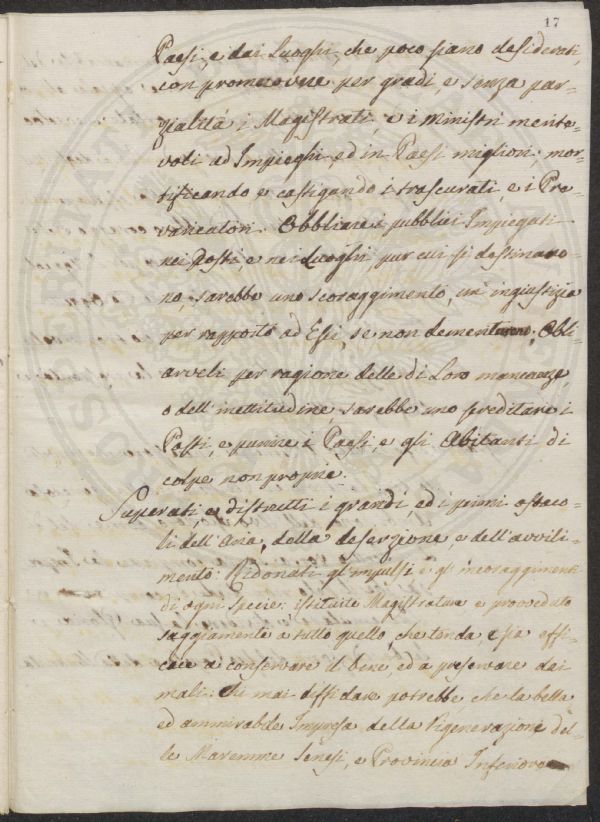 17
Paesi, e dai Luoghi, che poco siano desiderati,
con promuovere per gradi, e senza par-
zialità i Magistrati, e i Ministri merite-
voli ad Impieghi, ed in Paesi migliori; mor-
tificando, e castigando i trascurati, e i Pre-
varicatori. Obbliare i pubblici Impiegati
nei Posti, e nei Luoghi per cui si destinaro-
no, sarebbe uno scoraggimento, un'ingiustizia
per rapporto ad Essi, se non demeritarono; Obli-
arveli per ragione delle di Loro mancanze,
o dell'inettitudine, sarebbe uno screditare i
Posti, e punire i Paesi, e gli Abitanti di
colpe non proprie.
Superati, e distrutti i grandi, ed i primi ostaco-
li dell'Aria, della deserzione, e dell'avvili-
mento: Ridonati gl'impulsi e gl'incoraggimenti
di ogni specie: istituite Magistrature e provveduto
saggiamente a tutto quello, che tenda, e sia effi-
cace a conservare il bene, ed a preservare dai
mali: Chi mai diffidare potrebbe che la bella
ed ammirabile Impresa della Rigenerazione del-
le Maremme Senesi, e Provincia Inferiore